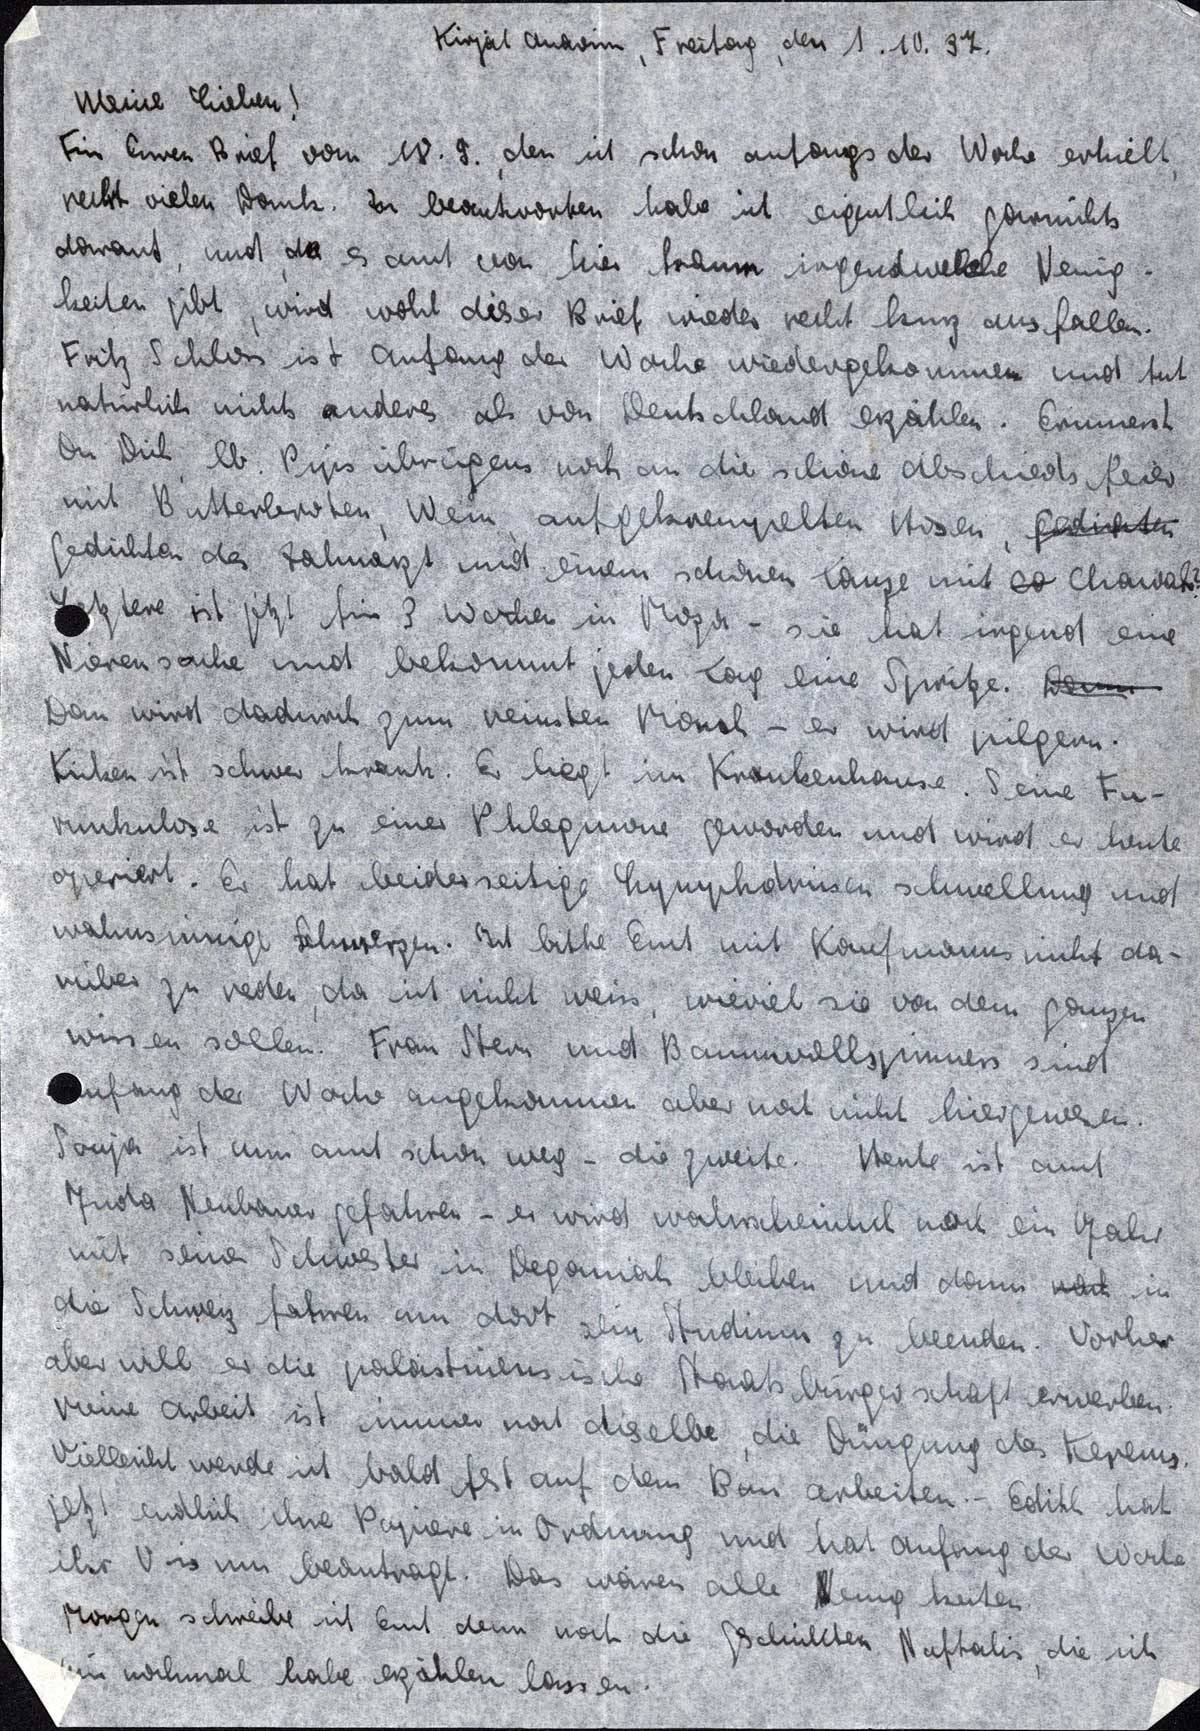 Kirjat Anavim, Freitag, den 1.10.37.
Meine Lieben!
Für Euren Brief vom 18.9., den ich schon anfangs der Woche erhielt,
recht vielen Dank. Zu beantworten habe ich eigentlich garnichts
darauf, und da es auch von hier kaum irgendwelche Neuig-
keiten gibt, wird wohl dieser Brief wieder recht kurz ausfallen.
Fritz Schloss ist Anfang der Woche wiedergekommen und tut
natürlich nichts anderes als von Deutschland erzählen. Erinnerst
Du Dich, lb. Pips übrigens noch an die schöne Abschiedsfeier
mit Butterbroten, Wein aufgekrempelten Hosen, Gedichten
Gedichten der Zahnarzt und einem schönen Tanze mit Chawah?
Letztere ist jetzt für 3 Wochen in Moza - sie hat irgend eine
Nierensache und bekommt jeden Tag eine Spritze. Dann
Dan wird dadurch zum reinsten Mönch - er wird pilgern.
Küken ist schwer krank. Er liegt im Krankenhause. Seine Fu-
runkulose ist zu einer Phlegmone geworden und wird er heute
operiert. Er hat beiderseitige Lymphdrüsenschwellung und
wahnsinnige Schmerzen. Ich bitte Euch mit Kaufmanns nicht da-
rüber zu reden, da ich nicht weiss, wieviel sie von dem ganzen
wissen sollen. Frau Stern und Baumwollspinners sind
Anfang der Woche angekommen aber noch nicht hiergewesen.
Sonja ist nun auch schon weg - die zweite. Heute ist auch
Juda Neubauer gefahren - er wird wahrscheinlich noch ein Jahr
mit seiner Schwester in Deganiah bleiben und dann nach in
die Schweiz fahren um dort sein Studium zu beenden. Vorher
aber will er die palästinensische Staatsbürgerschaft erwerben.
Meine Arbeit ist immer noch dieselbe, die Düngung des Kerems.
Vielleicht werde ich bald fest auf dem Bau arbeiten. - Edith hat
jetzt endlich ihre Papiere in Ordnung und hat Anfang der Woche
ihr Visum beantragt. Das wären alle Neuigkeiten
Morgen schreibe ich Euch dann noch die Geschichten Naftalis, die ich
mir nochmal habe erzählen lassen.